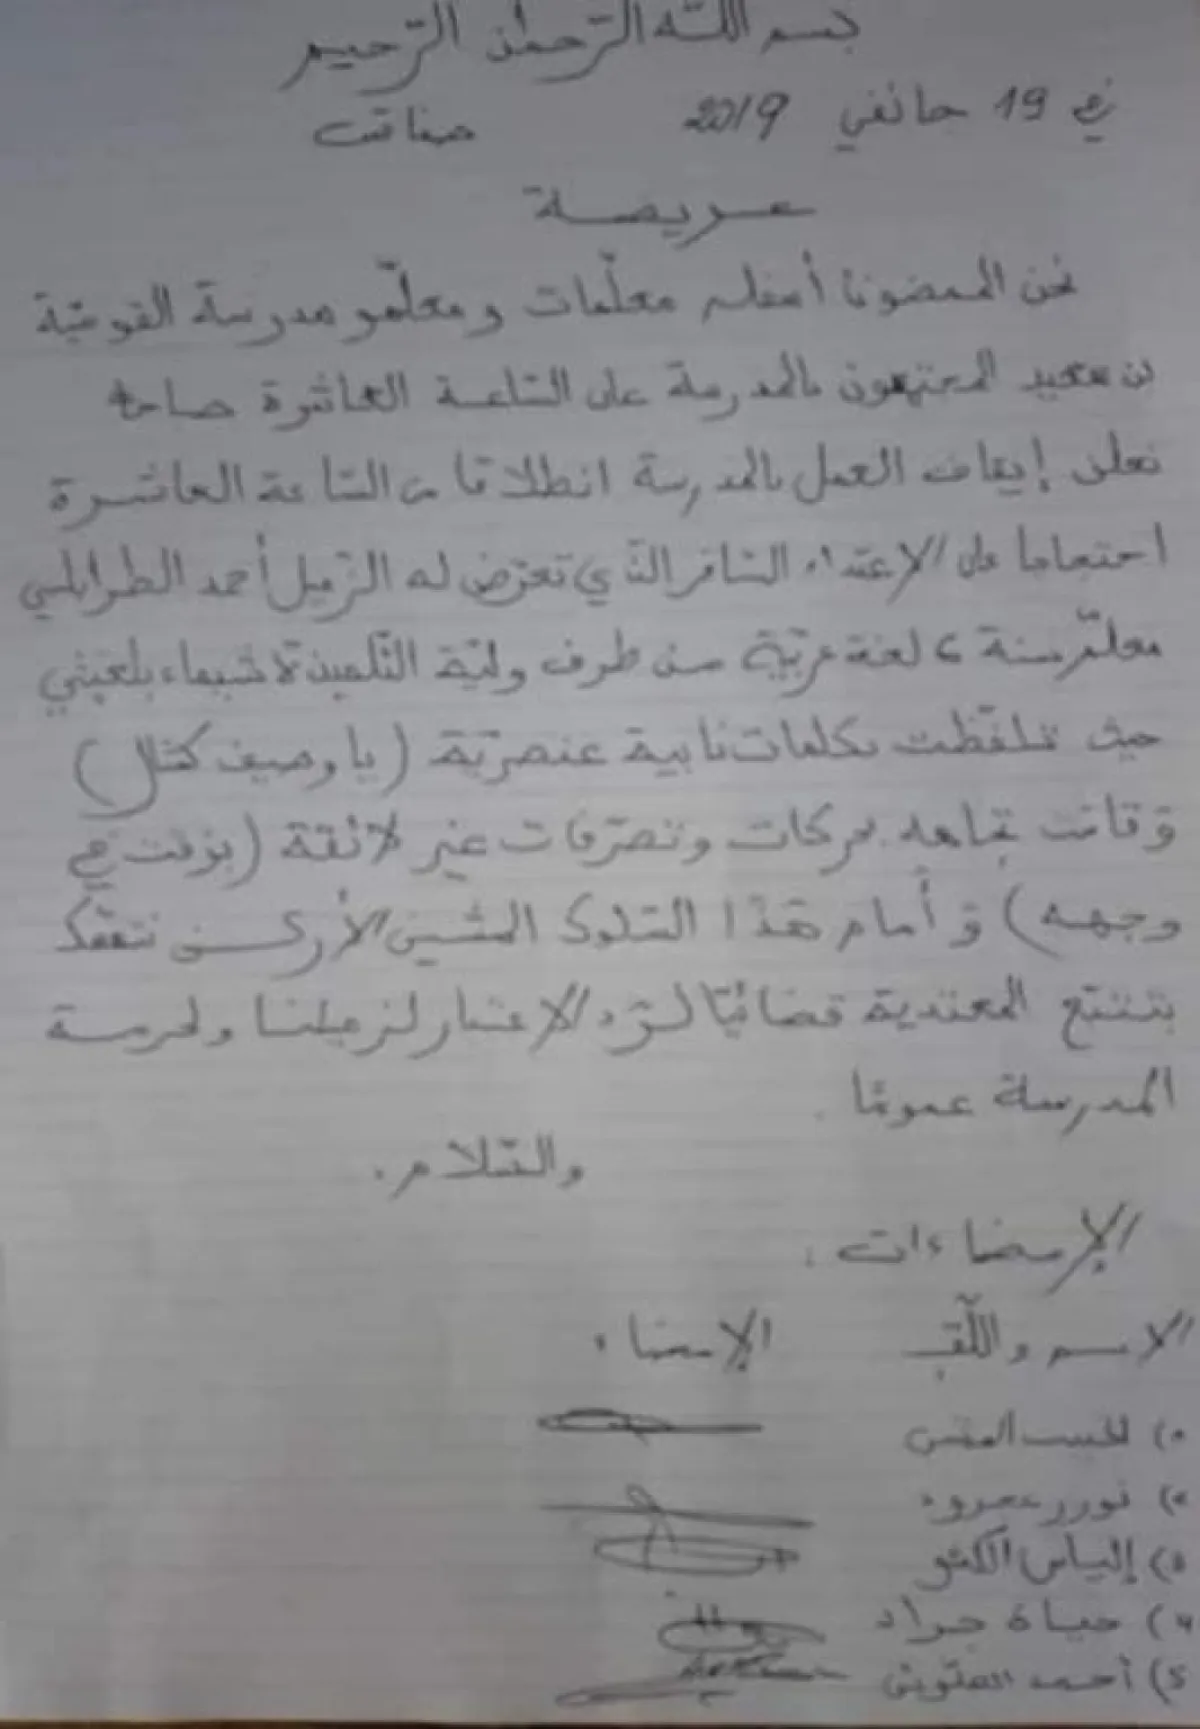 بسم الله الرحمان الرحيم
في 19 جانفي 2019 صفاقس
عريضة
نحن الممضون أسفله معلّمات ومعلّمو مدرسة القوميّة
بن سعيد المجتمعون بالمدرسة على السّاعة العاشرة صباحا
نعلن إيقاف العمل بالمدرسة انطلاقا من السّاعة العاشرة
احتجاجا على الإعتداء السّافر الذّي تعرّض له الزّميل أحمد الطرابلسي
معلّم سنة 6 لغة عربيّة من طرف وليّة التّلميذة شيماء بلعيفي
حيث تلفّظت بكلمات نابية عنصريّة (يا وصيف كحّال)
وقامت تجاهه بحركات وتصرّفات غير لائقة (بزقت في
وجهه) وأمام هذا السّلوك المشين نتمسّك
بتتبّع المعتدية قضائيّا لردّ الإعتبار لزميلنا ولحرمة
المدرسة عمومًا.
والسّلام.
الإمضاءات:
الاسم واللّقب الإمضاء
(1 الحبيب
(2
(3 إلياس
(4 حياة جراد
(5 أحمد